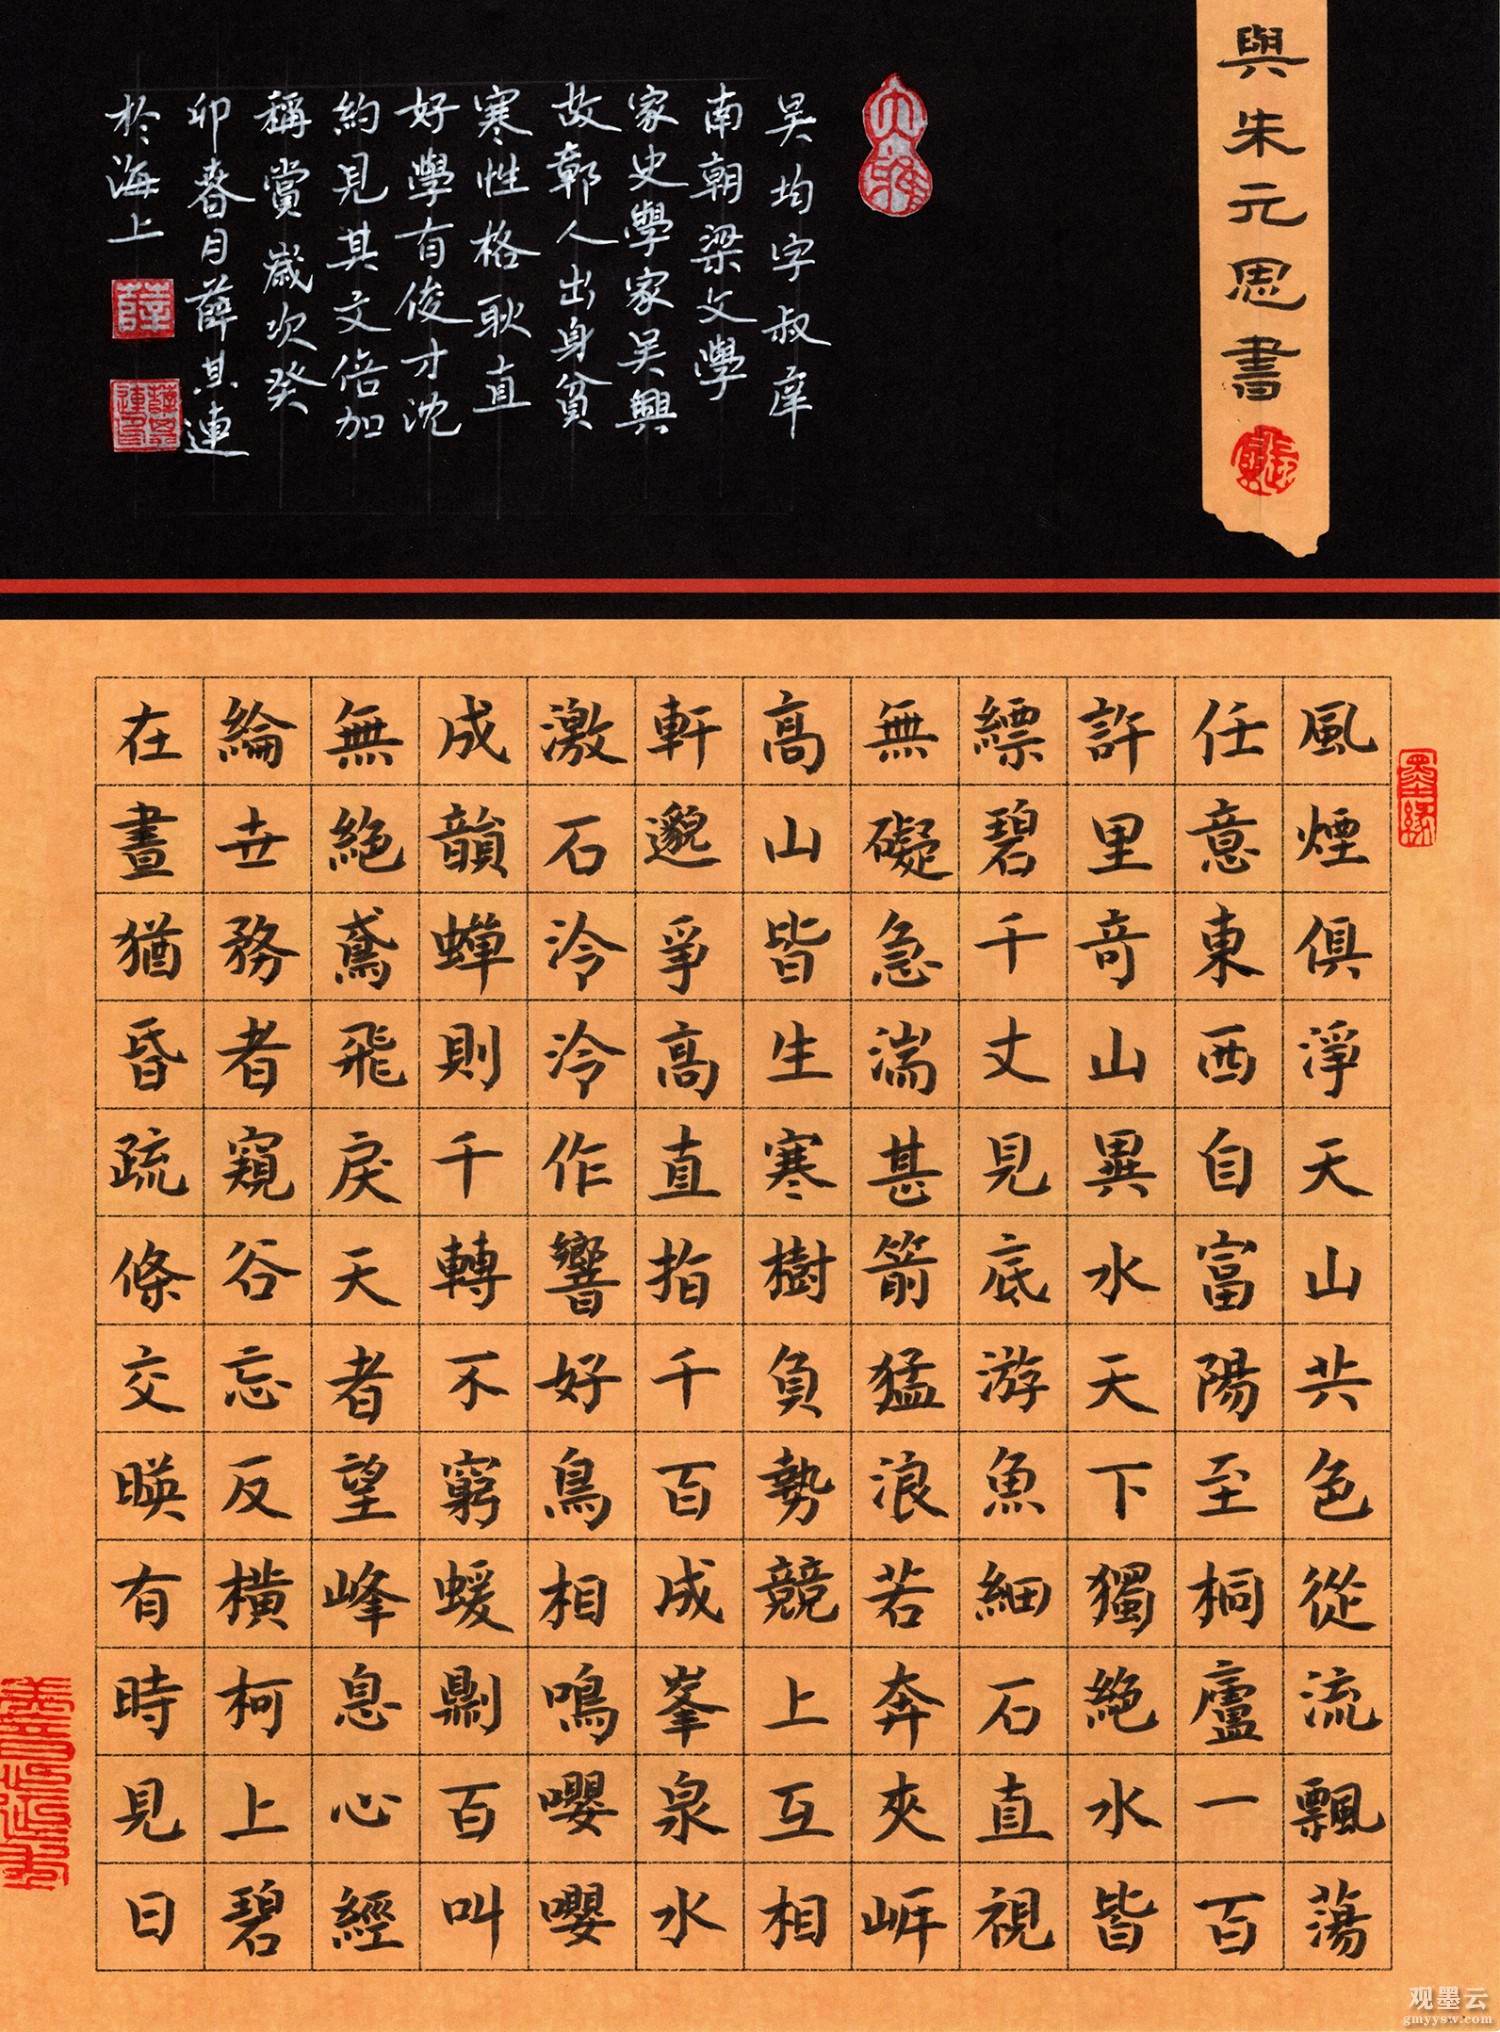 與朱元思書
大雅
吳均字叔庠
南朝梁文學
家史學家吳興
故鄣人出身貧
寒性格耿直
好學有俊才沈
約見其文倍加
稱賞歲次癸
卯春月薛其連
於海上
薛
墨緣
風煙俱淨天山共色從流飄蕩
任意東西自富陽至桐廬一百
許里奇山異水天下獨絕水皆
縹碧千丈見底游魚細石直視
無礙急湍甚箭猛浪若奔夾岸
高山皆生寒樹負勢競上互相
軒邈爭高直指千百成峯泉水
激石泠泠作響好鳥相鳴嚶嚶
成韻蟬則千轉不窮蝯則百叫
無絕鳶飛戾天者望峰息心經
綸世務者窺谷忘反橫柯上碧
在晝猶昏疏條交暎有時見日
观墨云
gmyysw.com